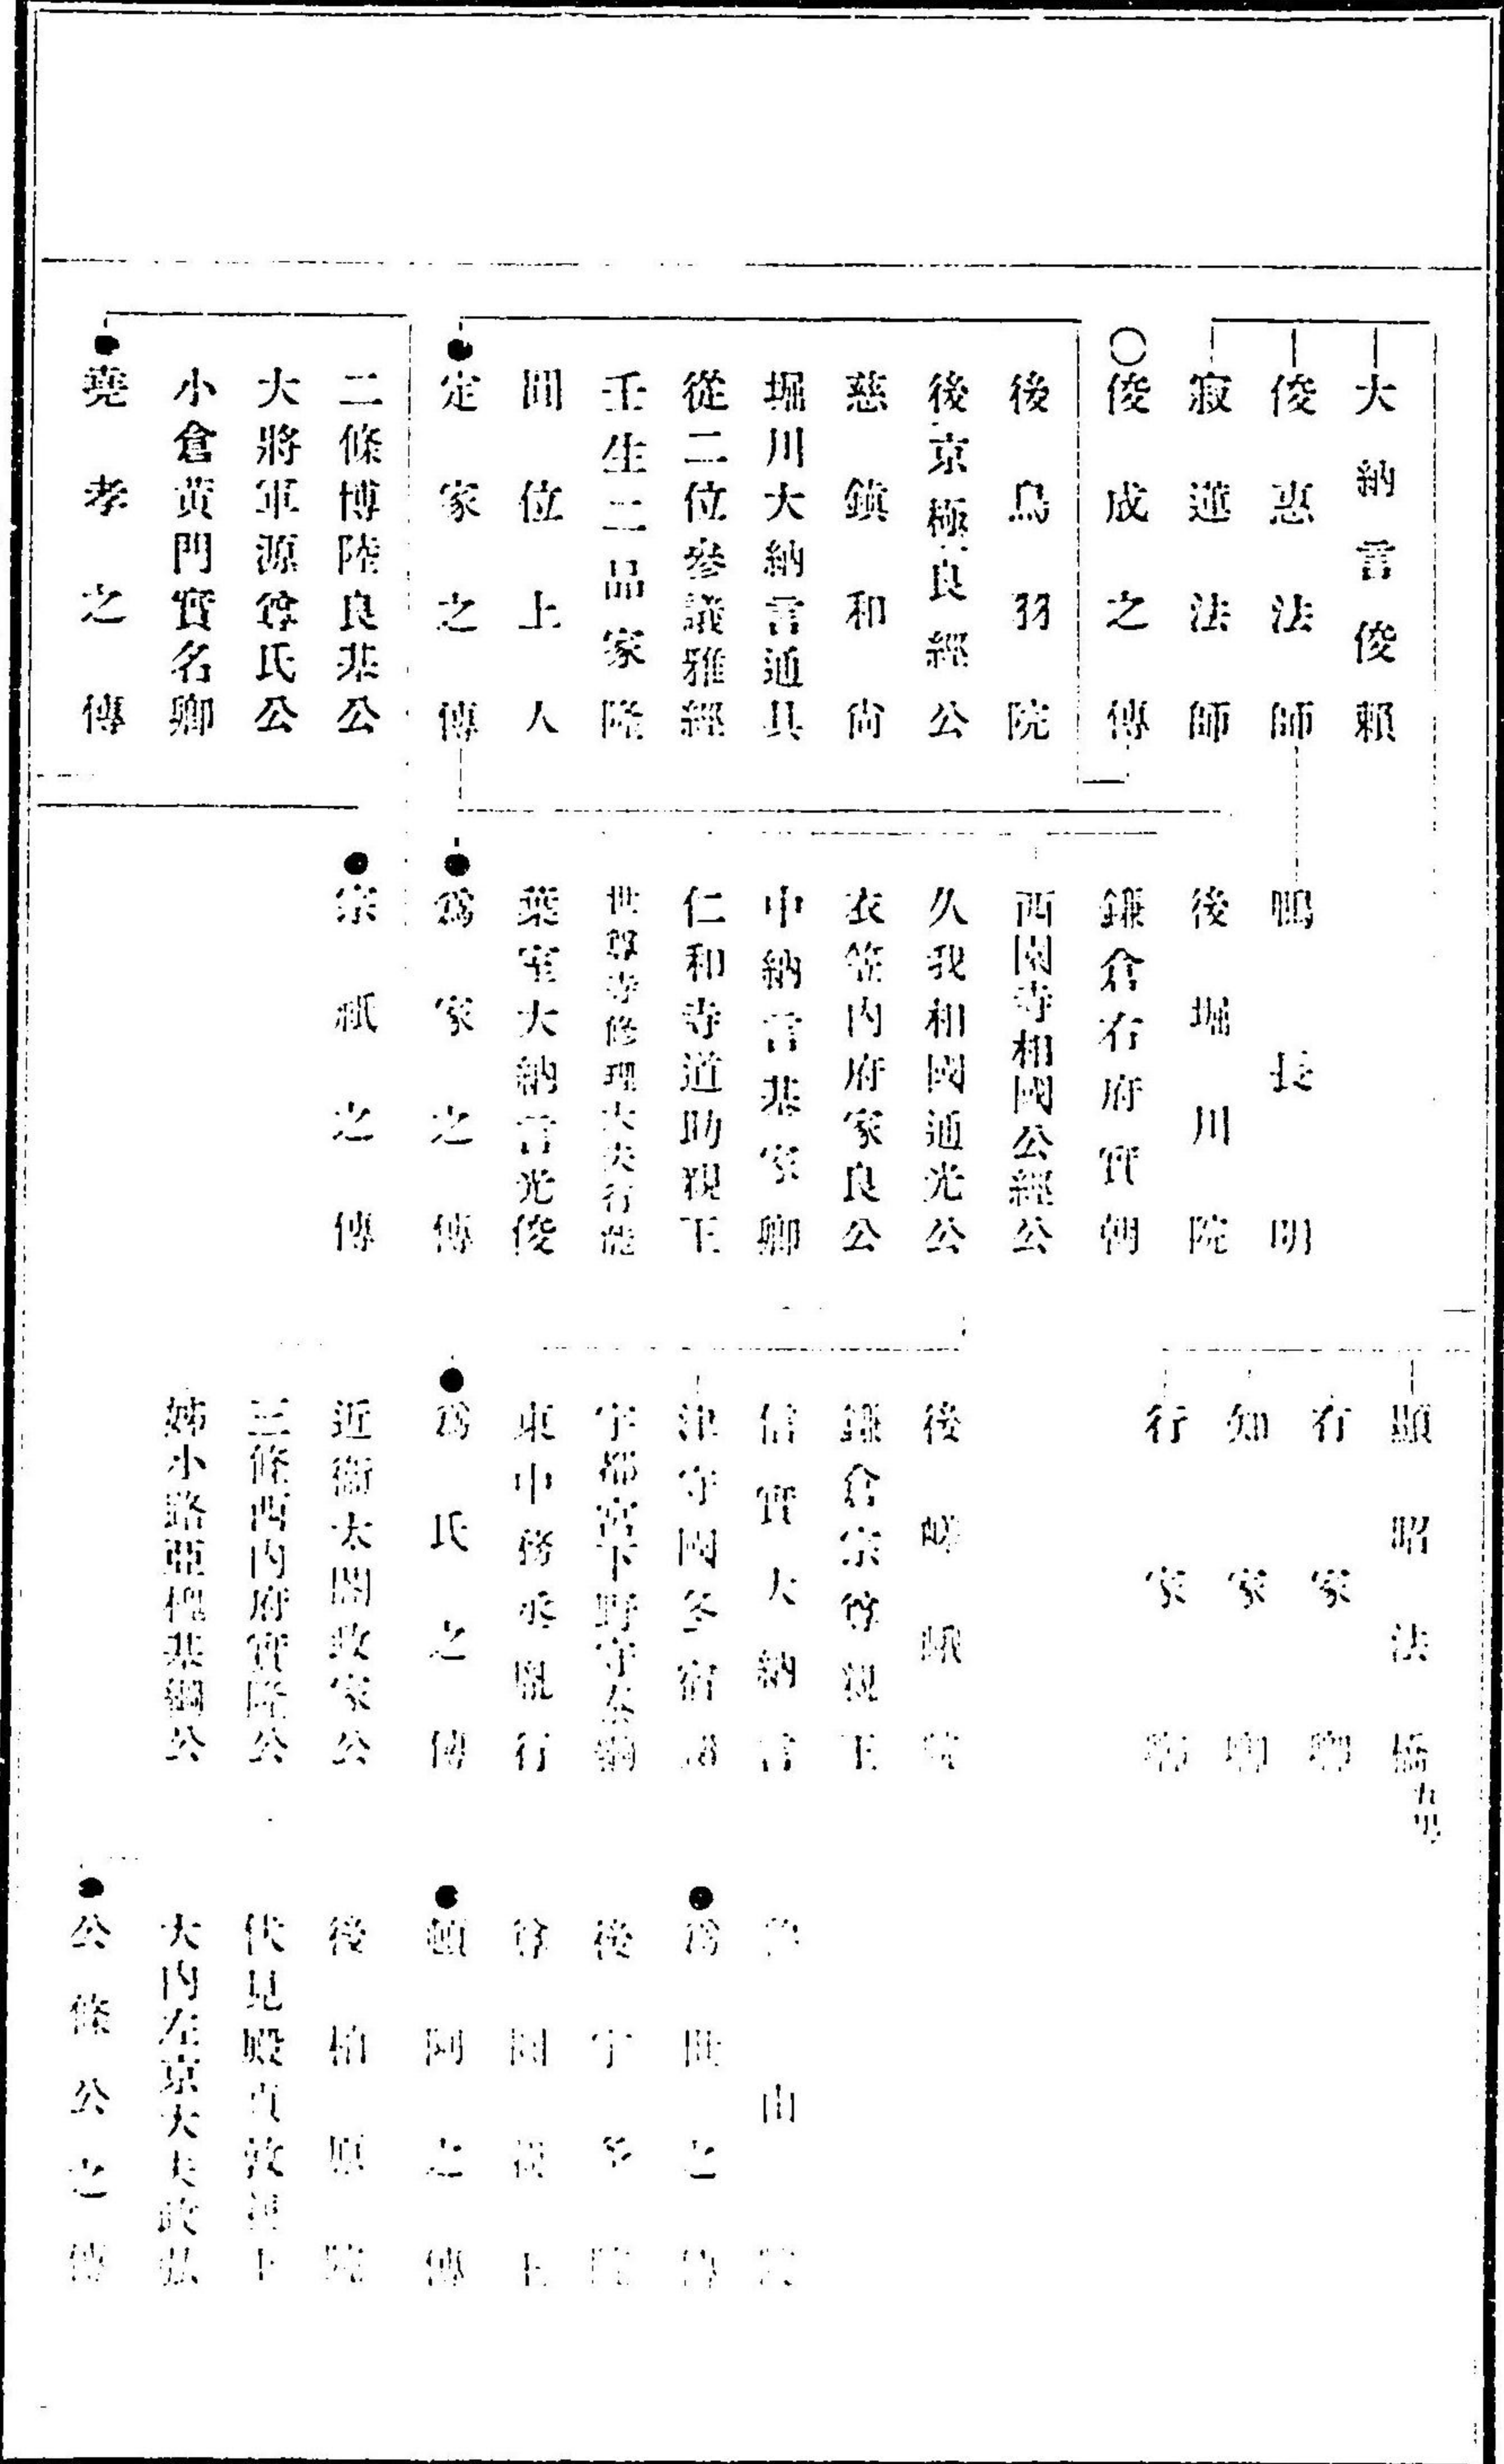 大納言俊賴
俊惠法師
寂蓮法師
○俊成之傳
後鳥羽院
後京極良經公
慈鎮和尙
堀川大納言通具
從二位參議雅經
壬生二品家隆
間位上人
●定家之傳
二條博陸良基公
大將軍源尊氏公
小倉黄門實名卿
●堯孝之傳
鴨長明
後堀川院
鎌倉右府實朝
西園寺相國公經公
久我相國通光公
衣笠内府家良公
中納言基家卿
仁和寺道助親王
世尊寺修理大夫行能
葉室大納言光俊
●爲家之傳
●宗祇之傳
顯昭法橋
有家卿
知家卿
行家卿
後嵯峨院
鎌倉宗尊親王
信實大納言
津守國冬
宇都宮下野守泰綱
東中務丞胤行
●爲氏之傳
近衞太閤政家公
三條西内府實隆公
姊小路亞槐基綱公
山
●爲世之傳
後宇多院
尊圓親王
●頓阿之傳
後柏原院
伏見殿貞敦親王
大内左京大夫政弘
●公條公之傳